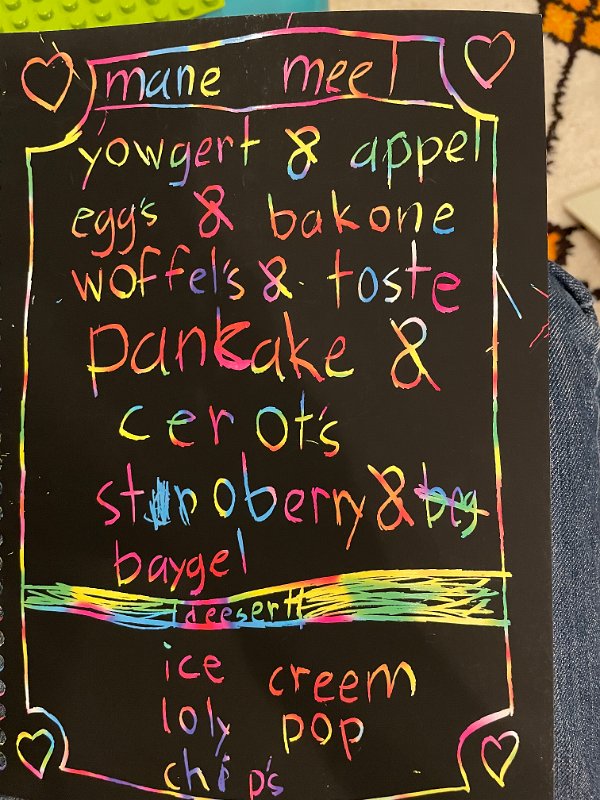 mane meel
yowgert & appel
egg's & bakone
woffel's & toste
pancake &
cerot's
stroberry & beg
baygel
deesert
ice creem
loly pop
chip's